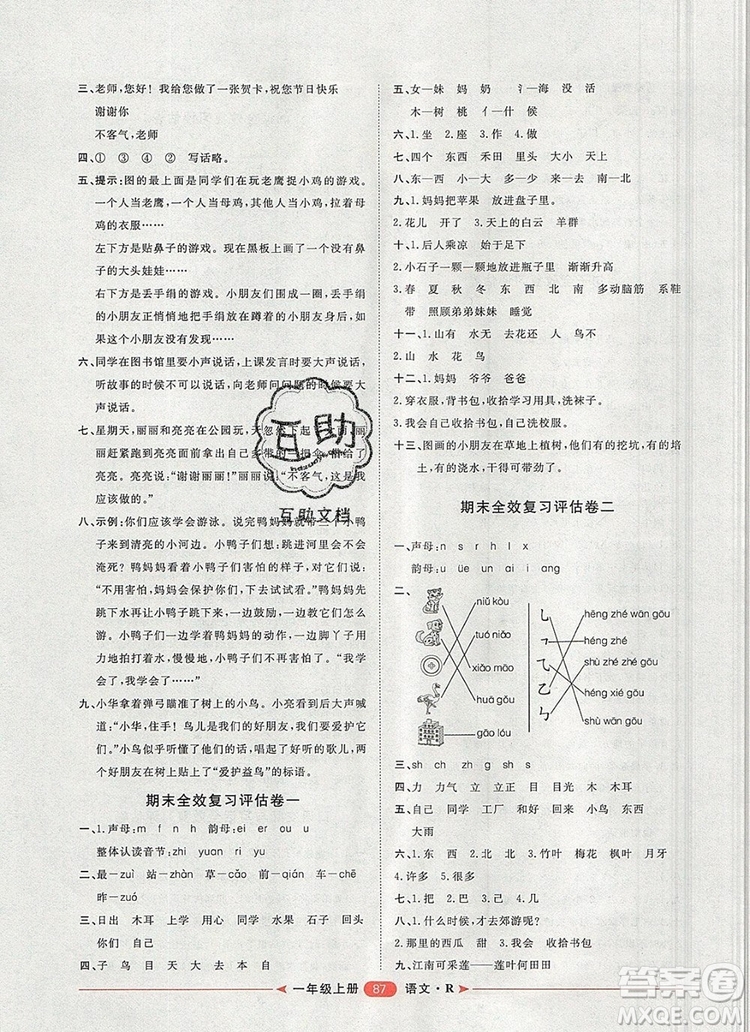 三、老师,您好!我给您做了一张贺卡,祝您节日快乐
谢谢你
不客气,老师
四、① ③ ④ ② 写话略。
五、提示:图的最上面是同学们在玩老鹰捉小鸡的游戏。
一个人当老鹰,一个人当母鸡,其他人当小鸡,拉着母
鸡的衣服……
左下方是贴鼻子的游戏。现在黑板上画了一个没有鼻
子的大头娃娃……
右下方是丢手绢的游戏。小朋友们围成一个圈,丢手绢
的小朋友正悄悄地把手绢放在蹲着的小朋友身后,如
果这个小朋友没有发现……
六、同学在图书馆里要小声说话,上课发言时要大声说话,
听故事的时候不可以说话,向老师问问题的时候可以大
声说话。
七、星期天,丽丽和亮亮在公园玩,忽然下起了大雨。丽丽
赶紧跑到亮亮身边,把自己多带的一把伞给他,并送给了
亮亮。亮亮说:“谢谢丽丽。”“不客气,这是我
应该做的。”
八、示例:你们应该学会游泳。它们跟着鸭妈妈
来到清亮的小河边。小鸭子们想:跳进河里会不会被
淹死?鸭妈妈看着它们害怕的样子,对它们说:“孩子
们,不用怕,妈妈会保护你们,下去试试看。”鸭妈妈
先跳下水,小鸭子也跟着跳下来,一边鼓励,一边教它们怎么
游。小鸭子们学着鸭妈妈的样子张开脚丫,用力
力地拍打水面,慢慢地,小鸭子们学会了。“我学会
了,我学会了……”
九、小华拿着弹弓瞄准了树上的小鸟。小亮看到后大声喊
道:“小华,住手!鸟儿是我们的好朋友,我们要爱护它
们。”小鸟似乎听懂了他们的话,唱起了好听的歌儿,两
个好朋友在树上贴上了“爱护益鸟”的标语。
期末全效复习评估卷一
一、声母:m f n h 韵母:ei er ou ui
整体认读音节:zhi yuan ri yi
二、最—zuì 站—zhàn 前—qián 车—chē
昨—zuó
三、日出 木耳 上学 用心 同学 水果 石子 回头
你们 自己
四、子 鸟 目 天 大 去 本 自
五、女—妹 妈 奶 氵—海 没 活
木—树 桃 亻—什 候
六、1.坐 2.座 3.作 4.做
七、四个 东西 禾田 里头 大小 云朵
八、东—西 小—大 多—少 来—去 右—左
九、1.妈妈把苹果 放进盘子里。
2.花儿 开了 3.天上的白云 羊群
十、1.后人乘凉 始于足下
2.小石子一颗一颗地放进瓶子里 渐渐升高
3.春 夏 秋 冬 西 东 南 北 刷牙 梳头 系鞋
带 照顾弟弟妹妹 睡觉
十一、1.山有 水无 去花还 人 鸟
2.山 水 花 鸟
十二、1.妈妈 爷爷 爸爸
2.穿衣服,背书包,收拾学习用具,洗袜子。
3.我会自己收拾书包,自己洗校服。
十三、图画的小朋友在草地上植树,他们有的挖坑,有的培
土,有的浇水,干得真开心。
期末全效复习评估卷二
一、声母:n s r h l x
韵母:u üe un ai i ang
二、
niǔ kòu
tuó niǎo
xiǎo māo
huā gǒu
gāo lóu
乚
㇕
乁
乙
㇉
héng zhé wān gōu
héng zhé
shù zhé zhé gōu
héng xié gōu
shù wān gōu
三、sh ch zh sh zh
四、力 力气 立 立正 目 目光 木 木头
五、自己 同学 工厂 和好 本子 小鸟 出来
大雨
六、1.东 西 2.北 北 3.竹叶 梅花 枫叶 月牙
4.许多 5.很多
七、1.个 2.把 3.己 4.几
八、1.什么时候,才去郊游呢?
2.那里的西瓜 甜 3.我会 收拾书包
九、江南可采莲=莲叶何田田
互助
互助文档
一年级上册 87 语文·R
答案圈
MXQE.COM